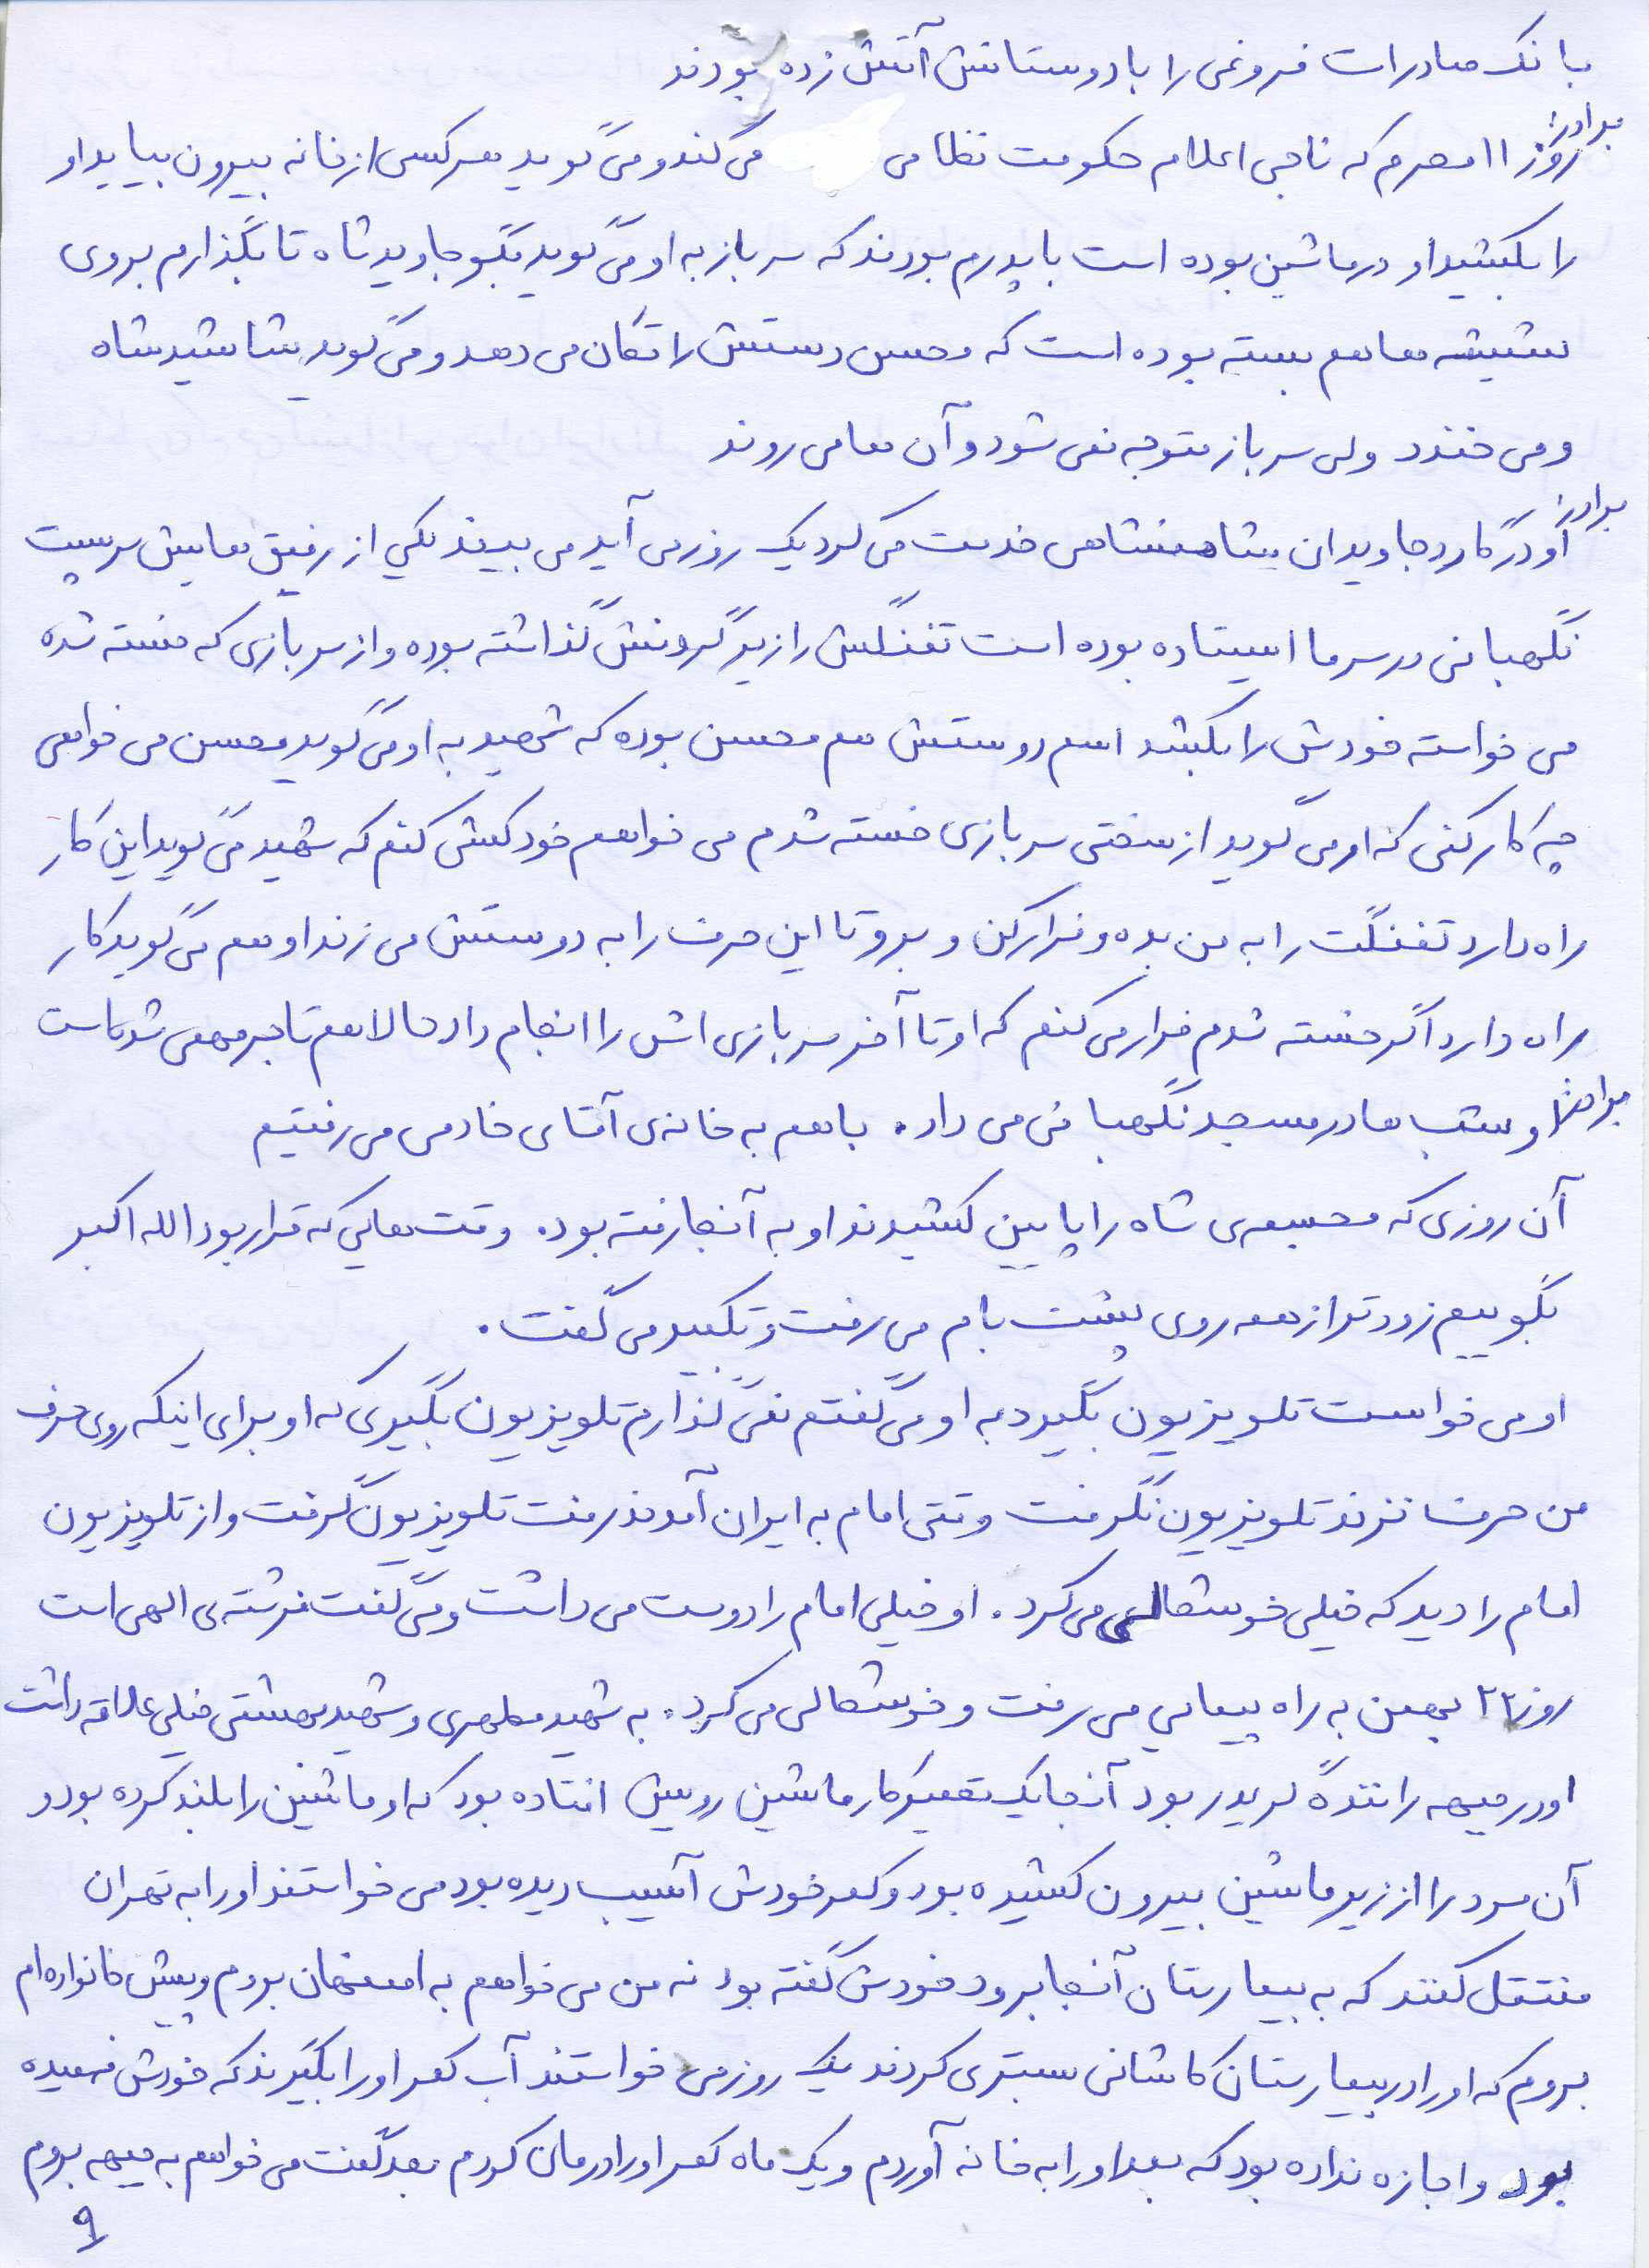 بانک صادرات فروغی را با دوستانش آتش زده بودند
برادرش:
روز ۱۱ محرم که ناجی اعلام حکومت نظامی می کند و می گوید هرکس از خانه بیرون بیاید او
را بکشید او در ماشین بوده است با پدرم بودند که سرباز به او می گوید بگو جاوید شاه تا بگذارم بروی
شیشه ها هم بسته بوده است که محسن دستش را تکان می دهد و می گوید شاشید شاه
و می خندد ولی سرباز متوجه نمی شود و آن ها می روند
برادرش:
او در گارد جاویدان شاهنشاهی خدمت می کرد یک روز می آید می بیند یکی از رفیق هایش سر پست
نگهبانی در سرما ایستاده بوده است تفنگش را زیر گردنش گذاشته بوده و از سربازی که خسته شده
می خواسته خودش را بکشد اسم دوستش هم محسن بوده که شهید به او می گوید محسن می خواهی
چه کار کنی که او می گوید از سختی سربازی خسته شدم می خواهم خودکشی کنم که شهید می گوید این کار
راه دارد تفنگت را به من بده و فرار کن و برو تا این حرف را به دوستش می زند او هم می گوید کار
راه دارد اگر خسته شدم فرار می کنم که او تا آخر سربازی اش را انجام داد حالا هم تاجر مهمی شده است
برادرش:
او شب ها در مسجد نگهبانی می داد. با هم به خانه ی آقای خادمی می رفتیم
آن روزی که مجسمه ی شاه را پایین کشیدند او به آنجا رفته بود. وقت هایی که قرار بود الله اکبر
بگوییم زودتر از همه روی پشت بام می رفت و تکبیر می گفت.
او می خواست تلویزیون بگیرد به او می گفتم نمی گذارم تلویزیون بگیری که او برای اینکه روی حرف
من حرف نزند تلویزیون نگرفت وقتی امام به ایران آمدند رفت تلویزیون گرفت و از تلویزیون
امام را دید که خیلی خوشحالی می کرد. او خیلی امام را دوست می داشت و می گفت فرشته ی الهی است
روز ۲۲ بهمن به راه پیمایی می رفت و خوشحالی می کرد. به شهید مطهری و شهید بهشتی خیلی علاقه داشت
او در جبهه راننده گریدر بود آنجا یک تعمیرکار ماشین رویش افتاده بود که او ماشین را بلند کرده بود و
آن مرد را از زیر ماشین بیرون کشیده بود و کمر خودش آسیب دیده بود می خواستند او را به تهران
منتقل کنند که به بیمارستان آنجا برود خودش گفته بود نه من می خواهم به اصفهان بروم و پیش خانواده ام
بروم که او را در بیمارستان کاشانی بستری کردند یک روز می خواستند آب کمر او را بگیرند که خودش فهمیده
بود و اجازه نداده بود که بعد او را به خانه آوردم و یک ماه کمر او را درمان کردم بعد گفت می خواهم به جبهه بروم
۹